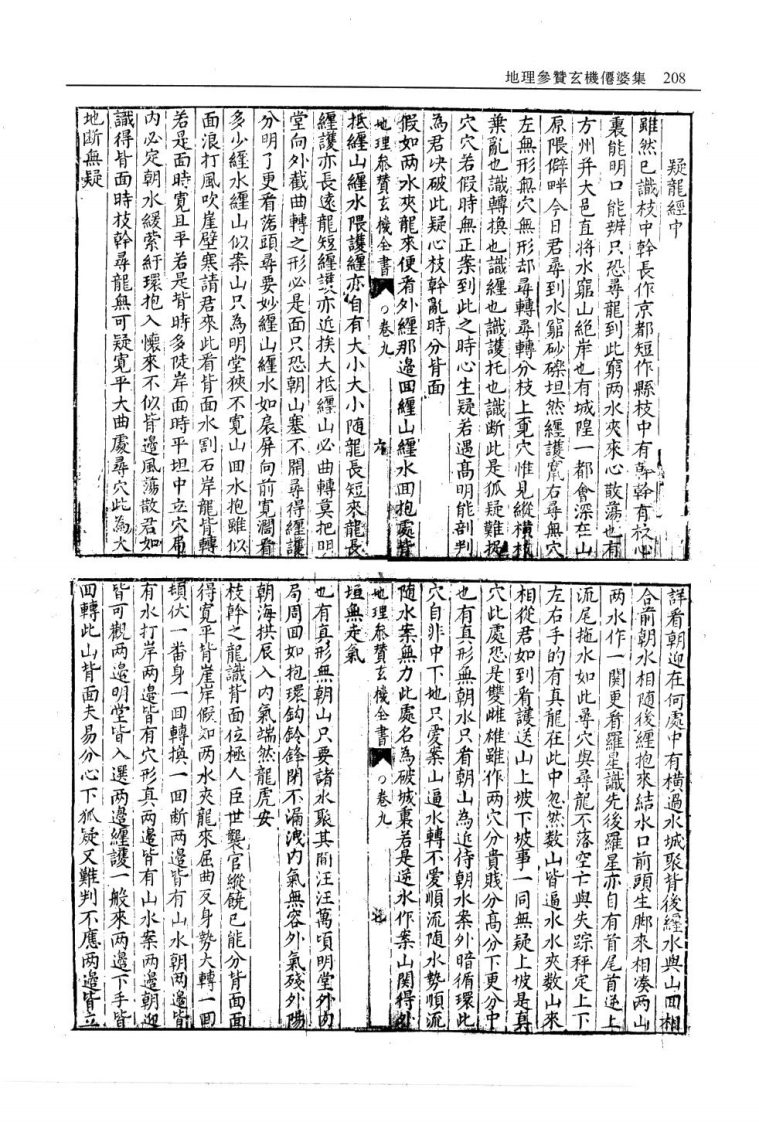 地理參贊玄機僊婆集　208
疑龍經中
雖然已識枝中幹長作京都短作縣枝中有幹幹有枝心
裏能明口能辨只恐尋龍到此窮兩水夾來心散蕩也有
方州并大邑直將水窮山絕岸也有城隍一都會深在山
原隈僻畔今日君尋到水窮砂礫坦然纏護右尋無穴
左無形無穴無形却尋轉尋轉分枝上覓穴惟見縱橫
葉亂也識轉換也識纏也識護托也識斷此是狐疑難
穴穴若假時無正案到此之時心生疑若遇高明能剖判
為君決破此疑心枝幹亂時分背面
假如兩水夾龍來便看外纏那邊回纏山纏水回抱處
地理參贊玄機全書　卷九　六
抵纏山纏水隈護纏亦自有大小大小隨龍長短來龍長
纏護亦長遠龍短纏護亦近挨大抵纏山必曲轉莫把明
堂向外截曲轉之形必是面只恐朝山塞不開尋得纏護
分明了更看落頭尋要妙纏山纏水如扆屏向前寬濶看
多少纏水纏山似案山只為明堂狹不寬山回水抱雖似
面浪打風吹崖壁寒請君來此看背面水割石岸龍背轉
若是面時寬且平若是背時多陡岸面時平坦中立穴局
內必定朝水緩縈紆環抱入懷來不似背邊風蕩散君如
識得背面時枝幹尋龍無可疑寬平大曲處尋穴此為大
地斷無疑
詳看朝迎在何處中有橫過水城聚背後纏水與山回相
合前朝水相隨後纏抱來結水口前頭生脚來相凑兩山
兩水作一関更看羅星識先後羅星亦自有首尾首逆上
流尾拖水如此尋穴與尋龍不落空亡與失踪秤定上下
左右手的有真龍在此中忽然数山皆逼水水夾数山來
相從君如到看護送山上坡下坡事一同無疑上坡是真
穴此處恐是雙雌雄雖作兩穴分貴賤分高分下更分中
也有真形無朝水只看朝山為近侍朝水案外暗循環此
穴自非中下地只愛案山逼水轉不愛順流隨水勢順流
隨水案無力此處名為破城裏若是逆水作案山関得
垣無走氣
地理參贊玄機全書　卷九
也有真形無朝山只要諸水聚其間汪汪萬頃明堂外内
局周回如抱環鈎鈐鋒閉不漏洩内氣無容外氣殘外陽
朝海拱辰入内氣端然龍虎安
枝幹之龍識背面位極人臣世襲官縱饒已能分背面面
得寬平背崖岸假如兩水夾龍來屈曲反身勢大轉一回
頓伏一番身一回轉換一回斷兩邊皆有山水朝兩邊皆
有水打岸兩邊皆有穴形真兩邊皆有山水案兩邊朝迎
皆可觀兩邊明堂皆入選兩邊纏護一般來兩邊下手皆
回轉此山背面夫易分心下狐疑又難判不應兩邊皆立